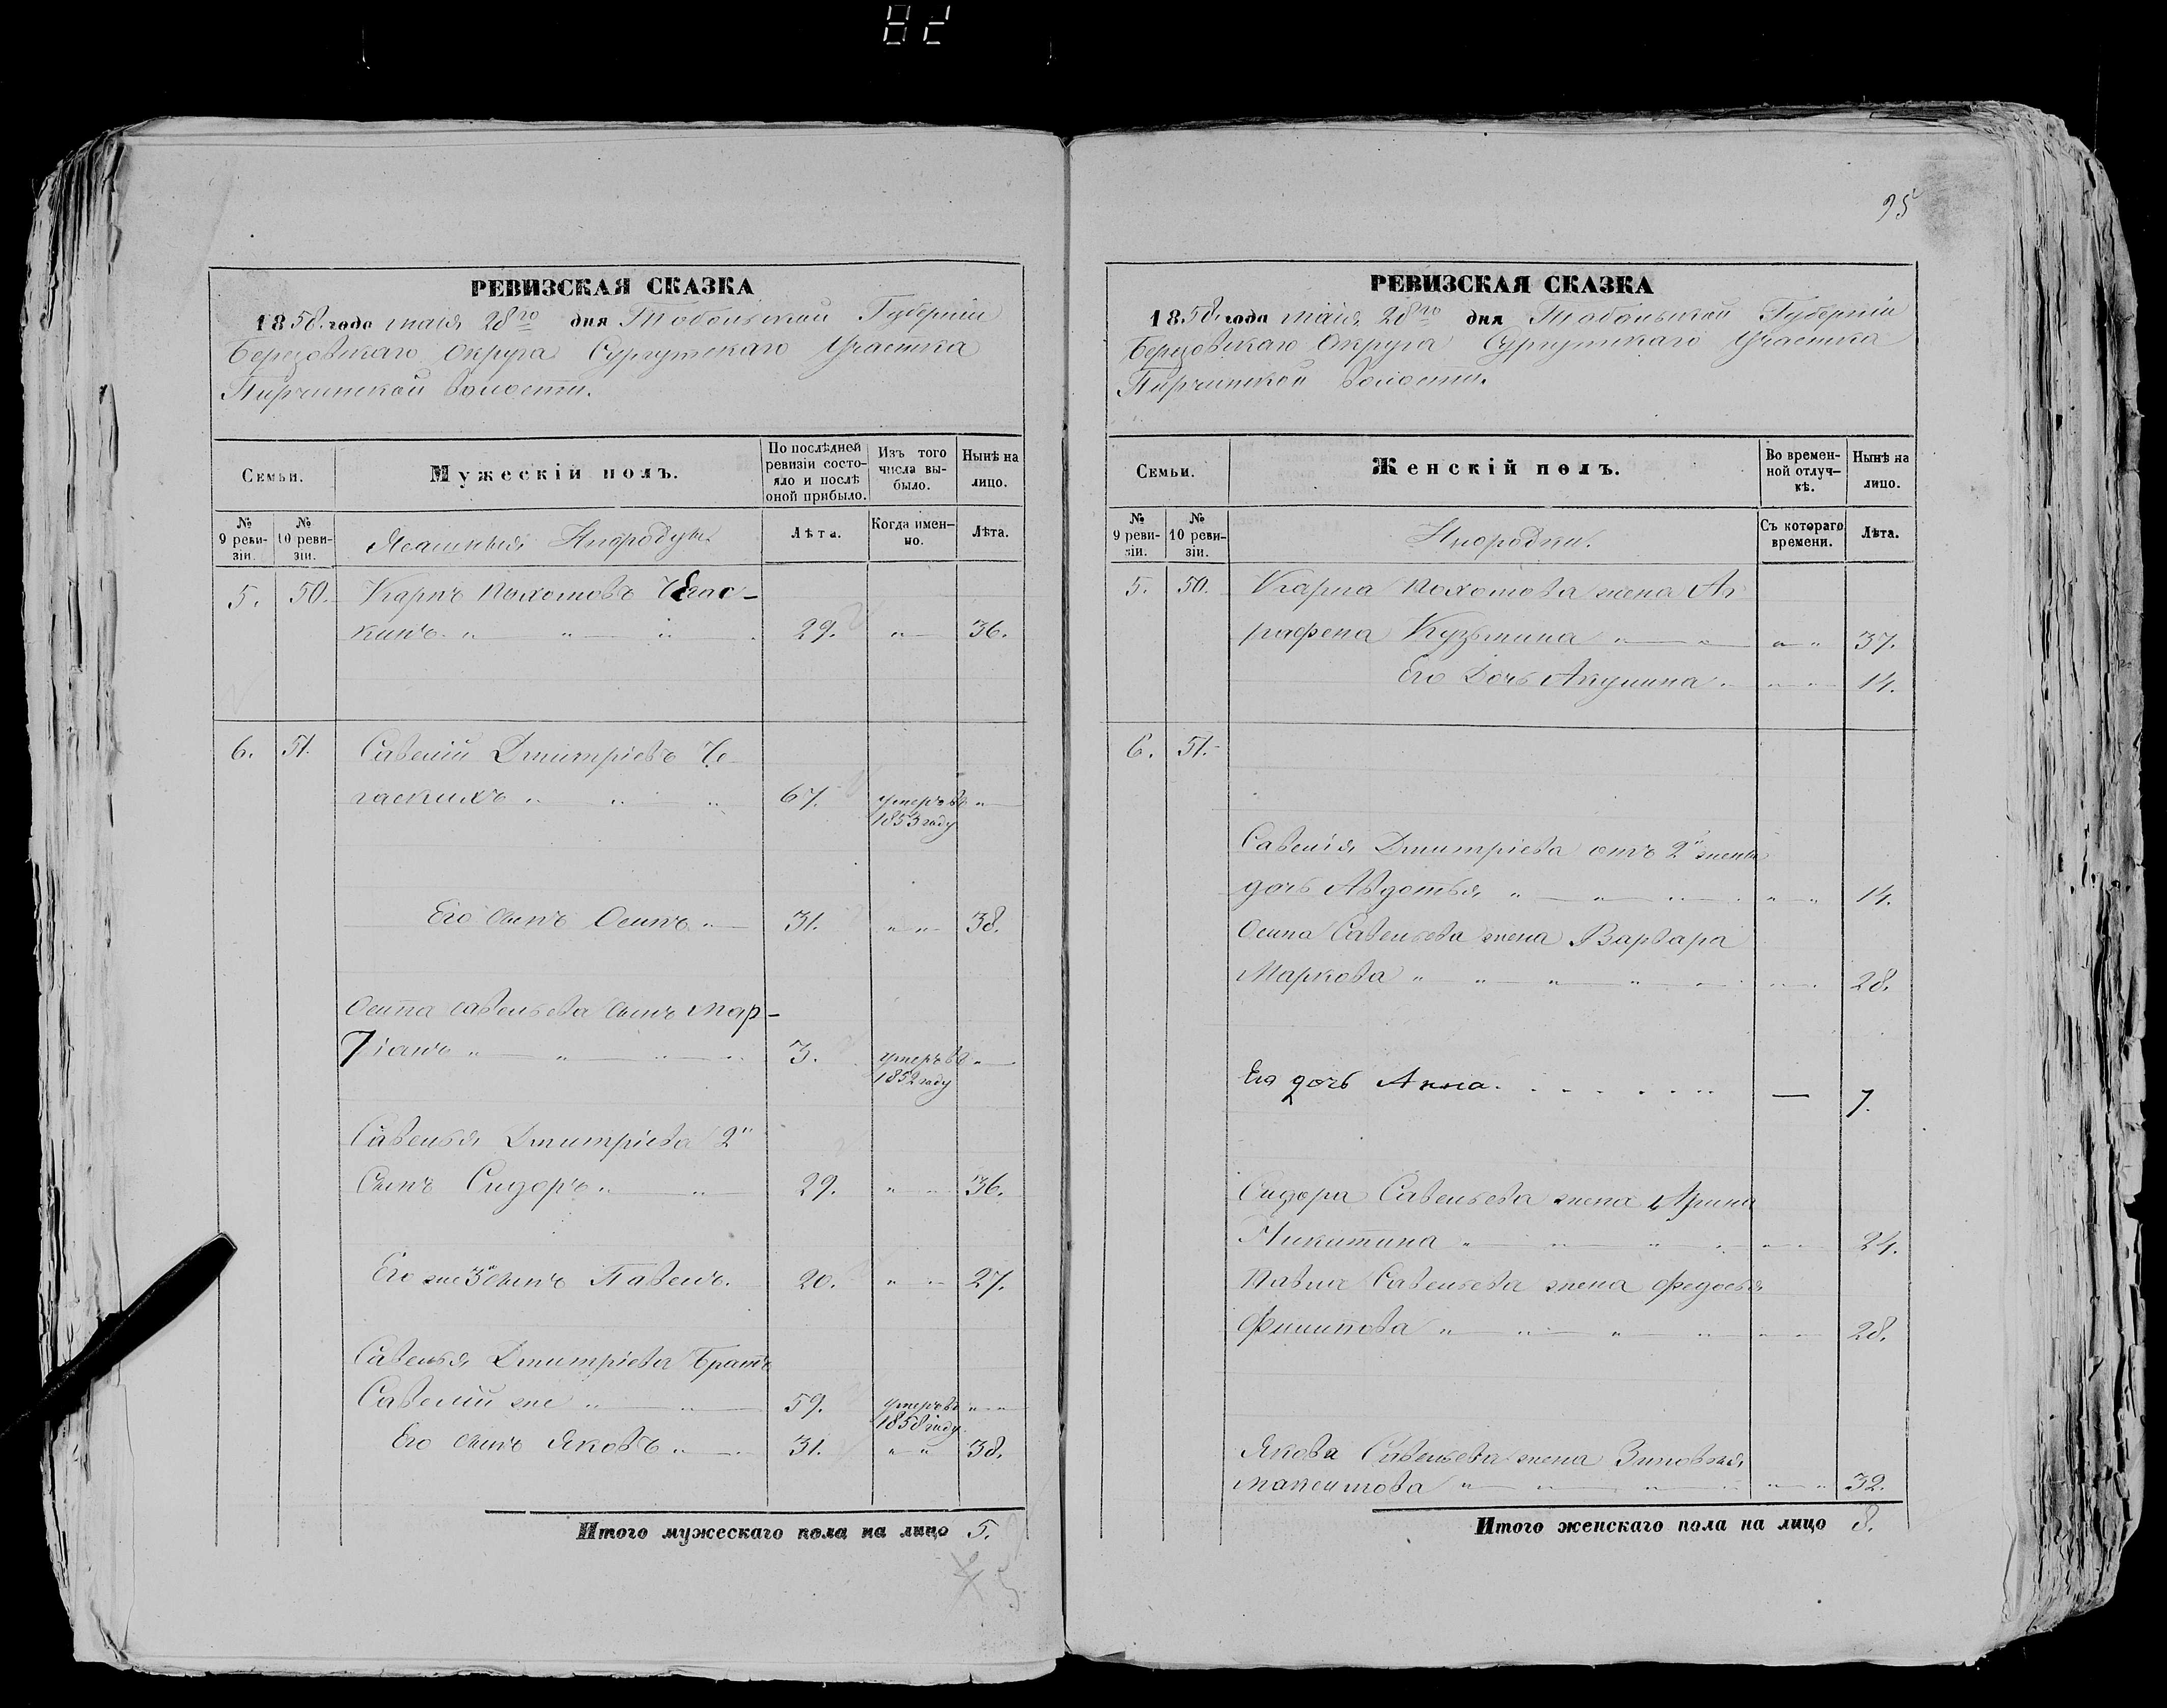 82
РЕВИЗСКАЯ СКАЗКА
1858 года маія 28го дня Тобольской Губерніи
Березовскаго Округа Сургутскаго Участка
Пирчинской волости.
Семьи.
Мужескій полъ.
По послѣдней ревизіи состо-яло и послѣ оной прибыло.
Изъ того числа вы-было.
Нынѣ на лицо.
№ 9 реви-зіи.
№ 10 реви-зіи.
Ясашныя Инородцы.
Лѣта.
Когда имен-но.
Лѣта.
5. 50. Карпъ Пахомовъ
кинъ " " " 29. " 36.
6. 51. Савелій Дмитріевъ Че
гаскинъ " " " 67. умеръ въ "
1853 году
Его сынъ Осипъ " 31. " " 38.
Осипа Савельева сынъ Мар-
тіанъ " " " " 3. умеръ въ "
1852 году
Савелья Дмитріева 2й
Сынъ Сидоръ " " 29. " " 36.
Его же 3й сынъ Павелъ. 20. " " 27.
Савелья Дмитріева Братъ
Савелій же " " 59. умеръ въ " "
1858 году
Его сынъ Яковъ " " 31. " " 38.
Итого мужескаго пола на лицо 5.
5.
95
РЕВИЗСКАЯ СКАЗКА
1858 года маія 28го дня Тобольской Губерніи
Березовскаго Округа Сургутскаго Участка
Пирчинской волости.
Семьи.
Женскій полъ.
Во времен-ной отлуч-кѣ.
Нынѣ на лицо.
№ 9 реви-зіи.
№ 10 реви-зіи.
Инородки.
Съ котораго времени.
Лѣта.
5. 50. Карпа Пахомова жена Аг
рафена Кузьмина " " " " 37.
Его Дочь Акулина " " " 14.
6. 51.
Савелія Дмитріева отъ 2й жены
дочь Авдотья " " " " " 14.
Осипа Савельева жена Варвара
Маркова " " " " " " " 28.
Его дочь Анна. — 7.
Сидора Савельева жена Арина
Никитина " " " " " " 24.
Павла Савельева жена Федосья
Филипова " " " " " " 28.
Якова Савельева жена Зиновья
Максимова " " " " " " 32.
Итого женскаго пола на лицо 8.